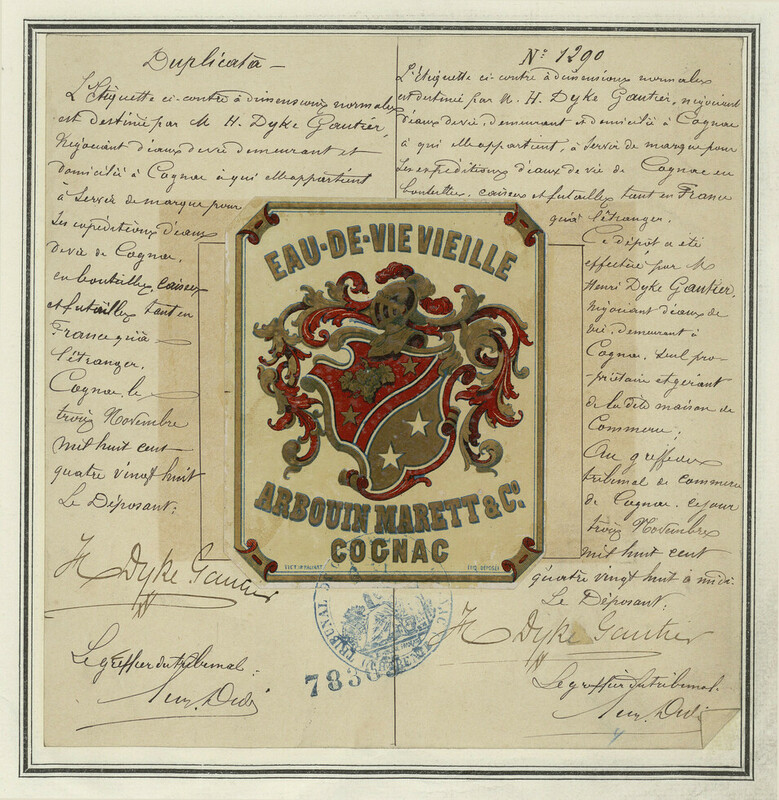 Duplicata
L'Etiquette ci-contre à dimensions normales
est destiné par M H. Dyke Gautier,
Négociant d'eaux de vie demeurant et
domicilié à Cognac à qui elle appartient
à servir de marque pour
les expéditions d'eaux
de vie de Cognac,
en bouteilles, caisses
et futailles tant en
France qu'à
l'étranger.
Cognac, le
trois Novembre
mil huit cent
quatre vingt huit
Le Déposant:
H Dyke Gautier
Le greffier du tribunal.
EAU-DE-VIE VIEILLE
ARBOUIN MARETT & Co.
COGNAC
TRIBUNAL
7830
No 1290
L'Etiquette ci-contre à dimensions normales
est destiné par M. H. Dyke Gautier, négociant
d'eaux de vie, demeurant et domicilié à Cognac
à qui elle appartient, à servir de marque pour
les expéditions d'eaux de vie de Cognac en
bouteilles, caisses et futailles tant en France
qu'à l'étranger.
Ce dépôt a été
effectué par M
Henri Dyke Gautier,
négociant d'eaux de
vie, demeurant à
Cognac, seul pro-
priétaire et gérant
de la dite maison de
Commerce;
Au greffe du
tribunal de commerce
de Cognac, ce jour
trois Novembre
mil huit cent
quatre vingt huit à midi.
Le Déposant:
H Dyke Gautier
Le greffier du tribunal.